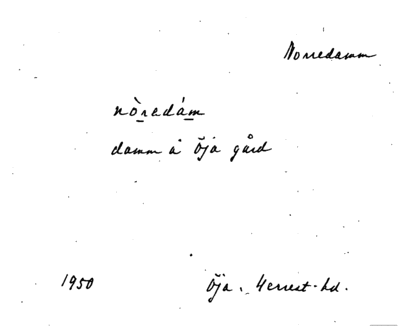 Norredamm
nòredám
damm å Öja gård
1950 Öja. Herrest. hd.